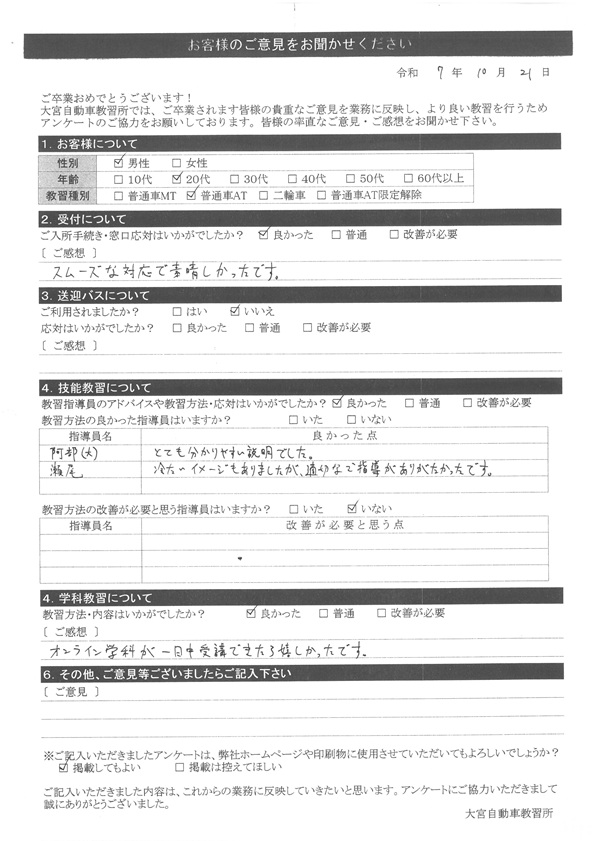 お客様のご意見をお聞かせください
令和 7 年 10 月 21 日
ご卒業おめでとうございます！
大宮自動車教習所では、ご卒業されます皆様の貴重なご意見を業務に反映し、より良い教習を行うため
アンケートのご協力をお願いしております。皆様の率直なご意見・ご感想をお聞かせ下さい。
1. お客様について
性別 ☑ 男性 □ 女性
年齢 □ 10代 ☑ 20代 □ 30代 □ 40代 □ 50代 □ 60代以上
教習種別 □ 普通車MT ☑ 普通車AT □ 二輪車 □ 普通車AT限定解除
2. 受付について
ご入所手続き・窓口応対はいかがでしたか？ ☑ 良かった □ 普通 □ 改善が必要
〔 ご感想 〕
スムーズな対応で素晴しかったです。
3. 送迎バスについて
ご利用されましたか？ □ はい ☑ いいえ
応対はいかがでしたか？ □ 良かった □ 普通 □ 改善が必要
〔 ご感想 〕
4. 技能教習について
教習指導員のアドバイスや教習方法・応対はいかがでしたか？ ☑ 良かった □ 普通 □ 改善が必要
教習方法の良かった指導員はいますか？ □ いた □ いない
指導員名 良かった点
阿部(大) とても分かりやすい説明でした。
瀬尾 冷たいイメージもありましたが、適切なご指導がありがたかったです。
教習方法の改善が必要と思う指導員はいますか？ □ いた ☑ いない
指導員名 改善が必要と思う点
4. 学科教習について
教習方法・内容はいかがでしたか？ ☑ 良かった □ 普通 □ 改善が必要
〔 ご感想 〕
オンライン学科が一日中受講できたら嬉しかったです。
6. その他、ご意見等ございましたらご記入下さい
〔 ご意見 〕
※ご記入いただきましたアンケートは、弊社ホームページや印刷物に使用させていただいてもよろしいでしょうか？
☑ 掲載してもよい □ 掲載は控えてほしい
ご記入いただきました内容は、これからの業務に反映していきたいと思います。アンケートにご協力いただきまして
誠にありがとうございました。
大宮自動車教習所